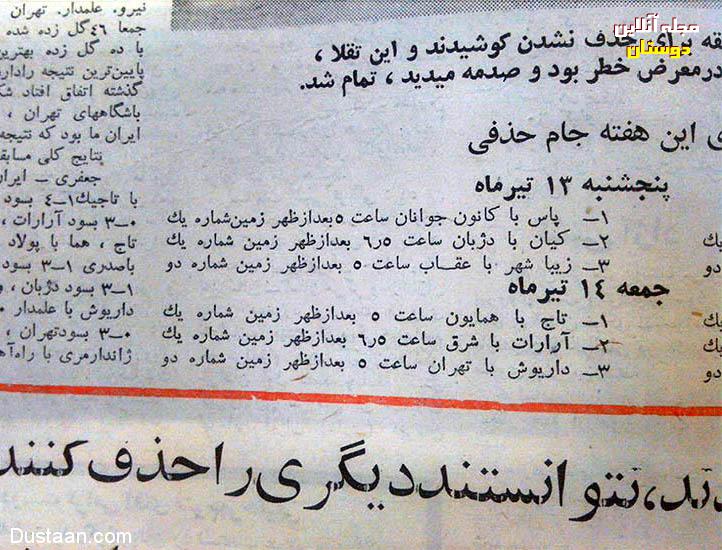 مجله آنلاین
دوستان
قه برای حذف نشدن کوشیدند و این تقلا ،
درمعرض خطر بود و صدمه میدید ، تمام شد.
ی این هفته جام حذفی
پنجشنبه ۱۳ تیرماه
۱ــ پاس با کانون جوانان ساعت ۵ بعدازظهر زمین‌شماره یك
۲ــ کیان با دژبان ساعت ۶٫۵ بعدازظهر زمین شماره یك
۳ــ زیبا شهر با عقــاب ساعت ۵ بعدازظهر زمین شماره دو
جمعه ۱۴ تیرماه
۱ــ تاج با همایون ساعت ۵ بعدازظهر زمین شماره یك
۲ــ آرارات با شرق ساعت ۶٫۵ بعدازظهر زمین شماره یك
۳ــ داریوش با تهران ساعت ۵ بعدازظهر زمین شماره دو
یك
دو
یك
یك
دو
نیرو. علمدار. تهران
جمعا ۴۶ گل زده شده
با ده گل زده بهترین
پایین‌ترین نتیجه رادار
گذشته اتفاق افتاد
باشگاههای تهران ،
ایران ما بود که نتیجه
نتایج کلی مسابق
جعفری ــ ایران
با تاجیك ۱ــ۴ بسود
۰ــ۳ بسود آرارات ،
تاج ، هما با پولاد
باصدری ۱ــ۳ بسود
۱ــ۳ بسود دژبان ، و
داریوش با علمدار
۰ــ۳ بسودتهران ،
ژاندارمری با راه‌آه
دند، نتوانستند دیگری را حذف کنند
Dustaan.com